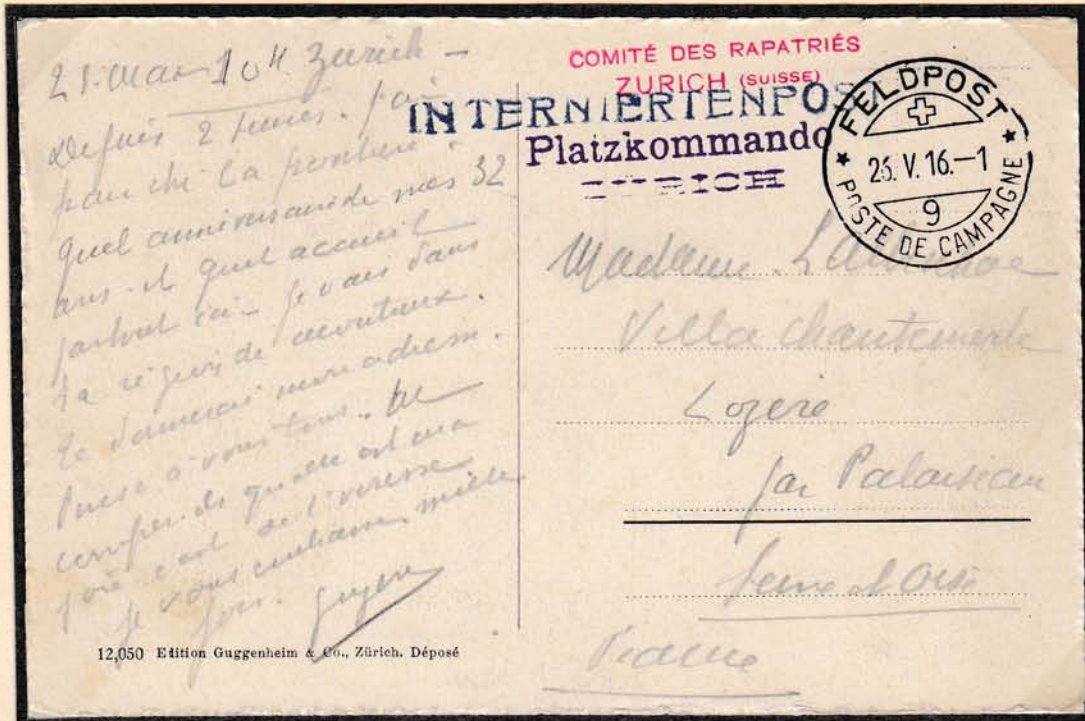 25 Mai 10 H. Zurich -
Depuis 2 heures. j'ai
franchi la frontière.
Quel anniversaire de mes 32
ans - et quel accueil
partout ici - Je vais dans
la région de
te donnerai mon adresse.
Pense à vous tous. tu
comprends quelle est ma
joie c'est de l'ivresse
Je vous embrasse mille
fois.
12,050 Edition Guggenheim & Co., Zürich. Déposé
COMITÉ DES RAPATRIÉS
ZURICH (SUISSE)
INTERNIERTENPOST
Platzkommando
ZURICH
FELDPOST
V. 16.-1
9
POSTE DE CAMPAGNE
Madame
Villa Chantemerle
Lozère
par Palaiseau
Seine et Oise
France